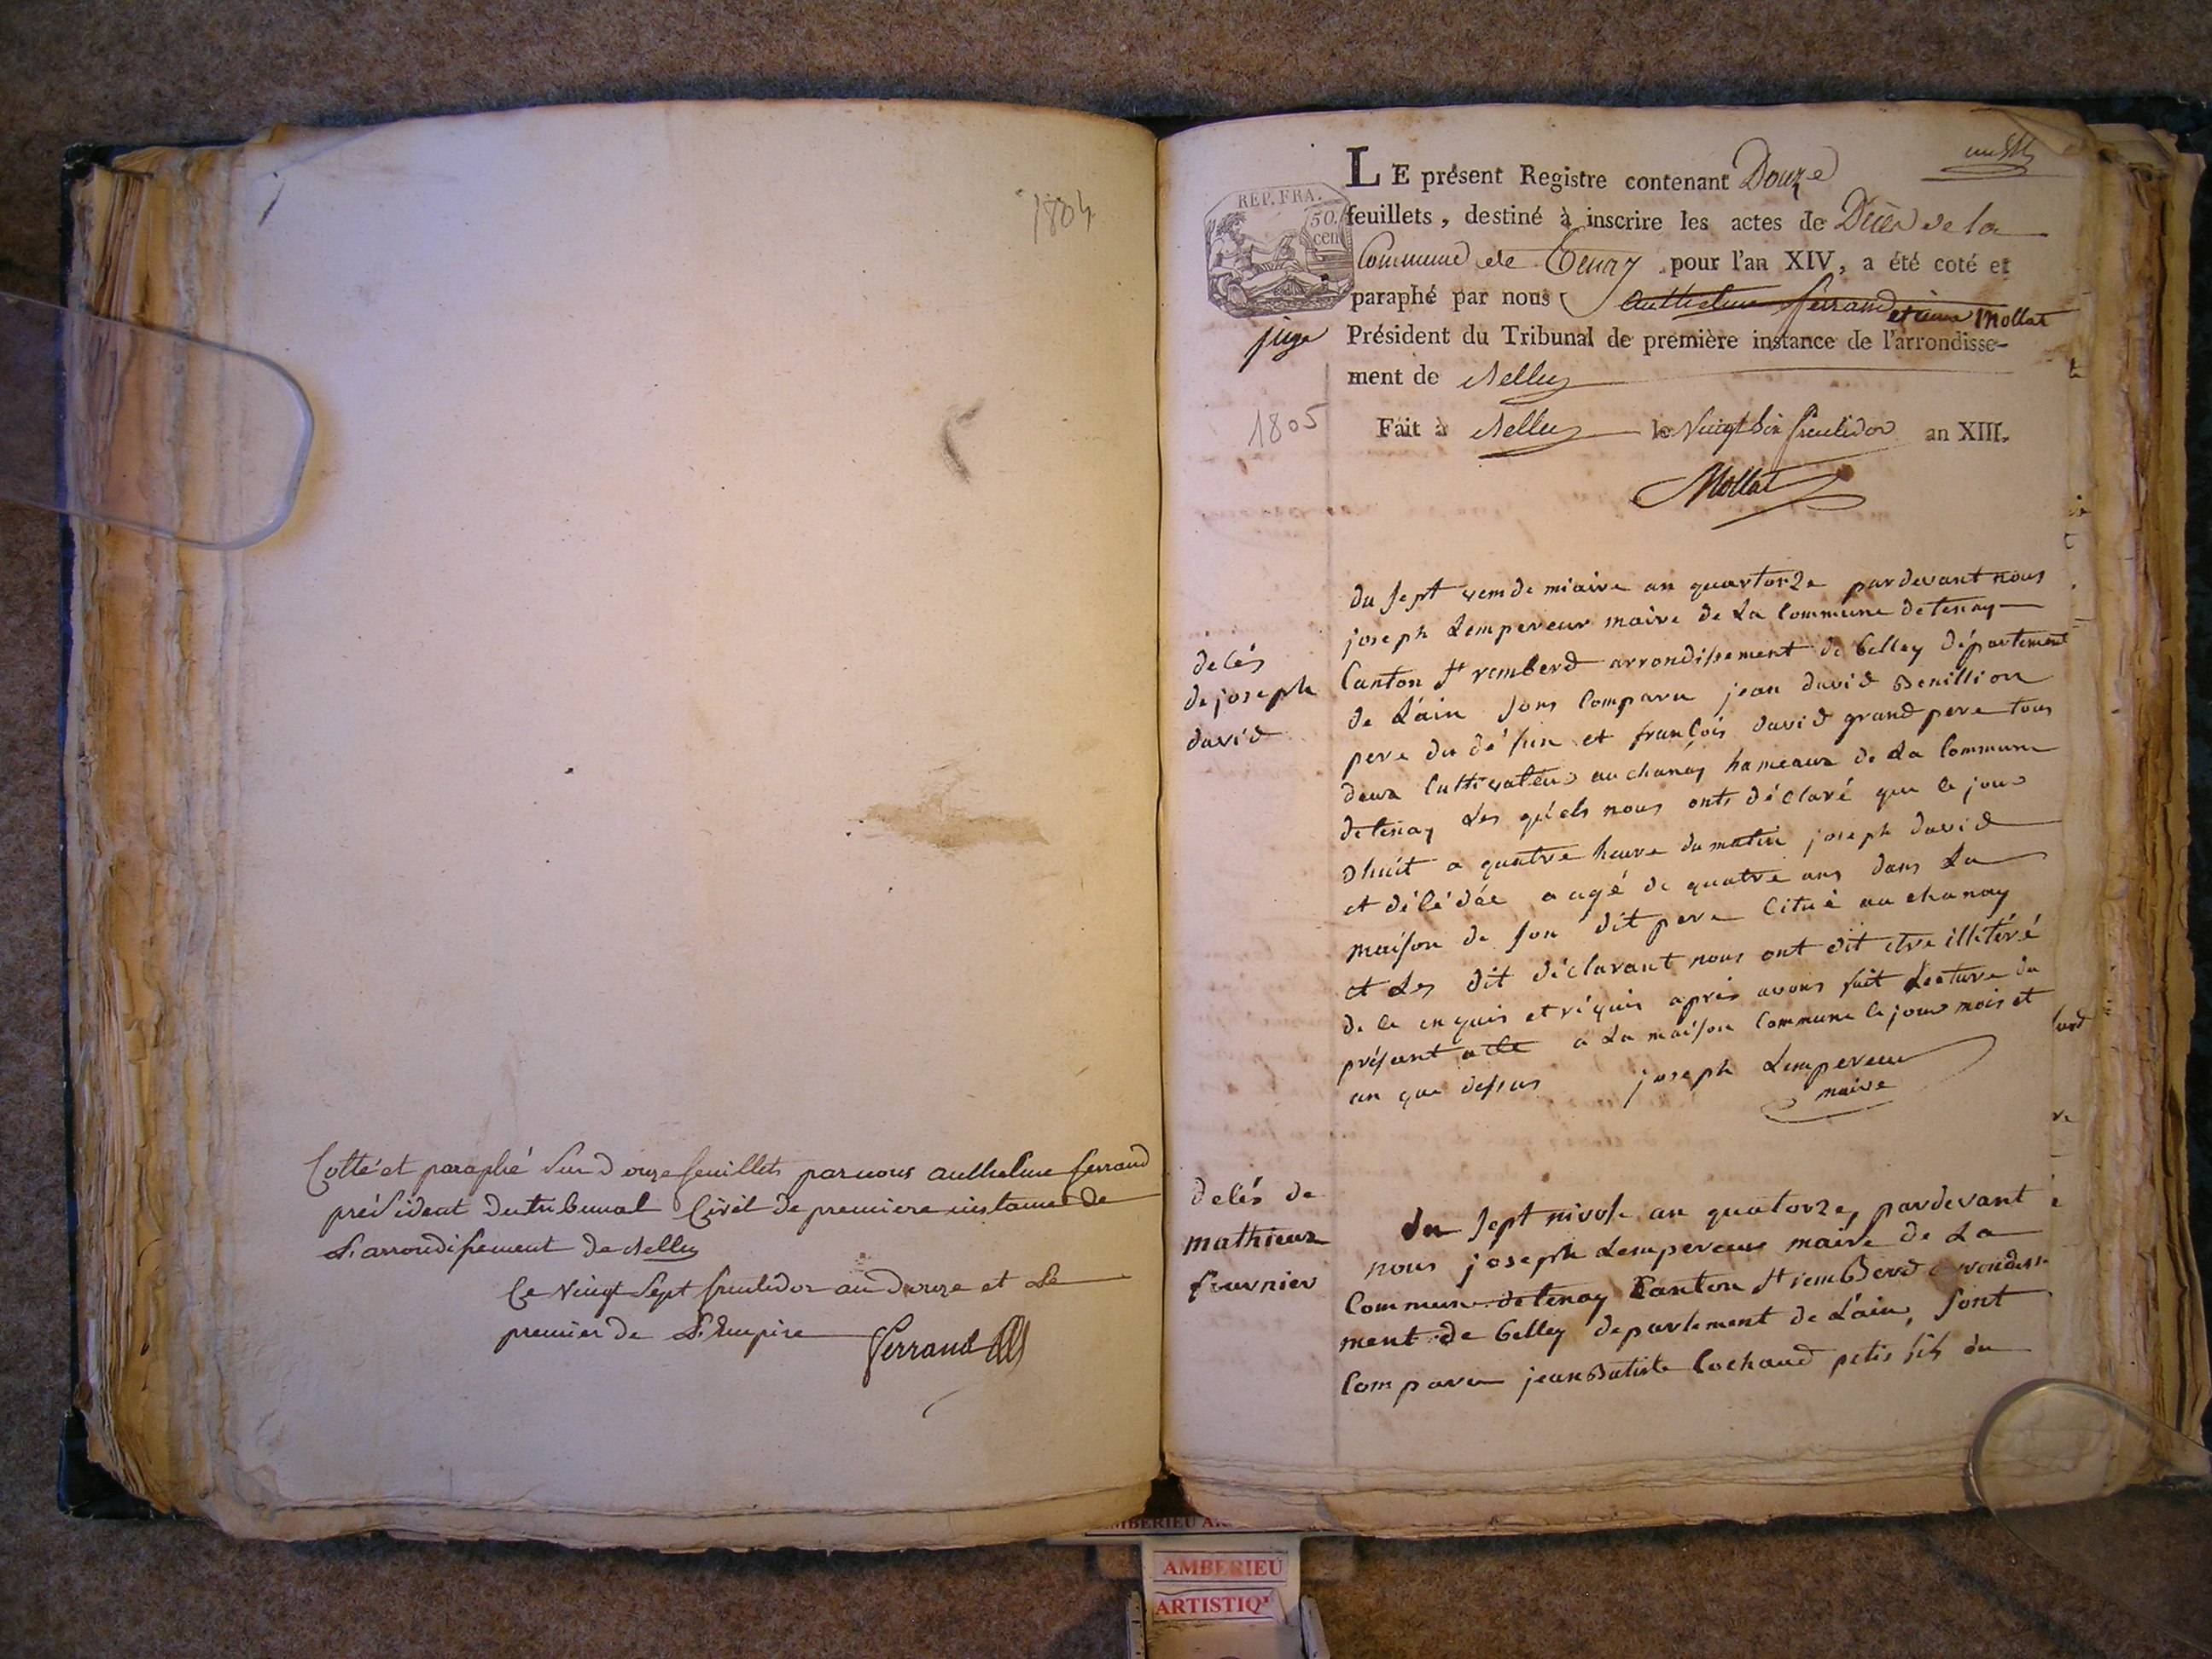 1804
Cotté et paraphé Sur Douze feuillets par nous anthelme ferrand
président du tribunal Civil de premiere instance de
L'arrondissement de Belley
Ce Vingt Sept fructidor an Douze et Le
premier de L'Empire Ferrand
LE présent Registre contenant Douze
REP. FRA.
50.
cen
feuillets, destiné à inscrire les actes de Décès de la
Commune de Tenay pour l'an XIV, a été coté et
paraphé par nous anthelme ferrand etienne Mollat
juge Président du Tribunal de première instance de l'arrondisse-
ment de Belley
1805
Fait à Belley le Vingt Six fructidor an XIII.
Mollat
decés
de joseph
david
du sept vemdemiaire an quartorze pardevant nous
joseph Lempereur maire de La Commune de tenay
Canton St remberd arrondissement de belley département
de L'ain sons Comparu jean david Benillion
pere du défun et françois david grand pere tous
deux Cultivateur au chanay hameaux de La Commune
de tenay Les quels nous onts déClaré que le jour
dhuit a quatre heure du matin joseph david
et décédée a agé de quatre ans dans La
maison de son dit pere Citué au chanay
et Les dit déclarant nous ont dit etre illétéré
de ce enquis et réquis après avons fait Lecture du
présant acte a La maison Commune le jour mois et
an que dessus joseph Lempereur
maire
decés de
mathieux
fournier
du sept nivose an quatorze, pardevant
nous joseph Lempereur maire de La
Commune de tenay Canton St remberd arrondisse
ment de belley departement de L'ain, sont
Comparu jean Batiste Cochaud petis fils du
AMBERIEU
ARTISTIQ